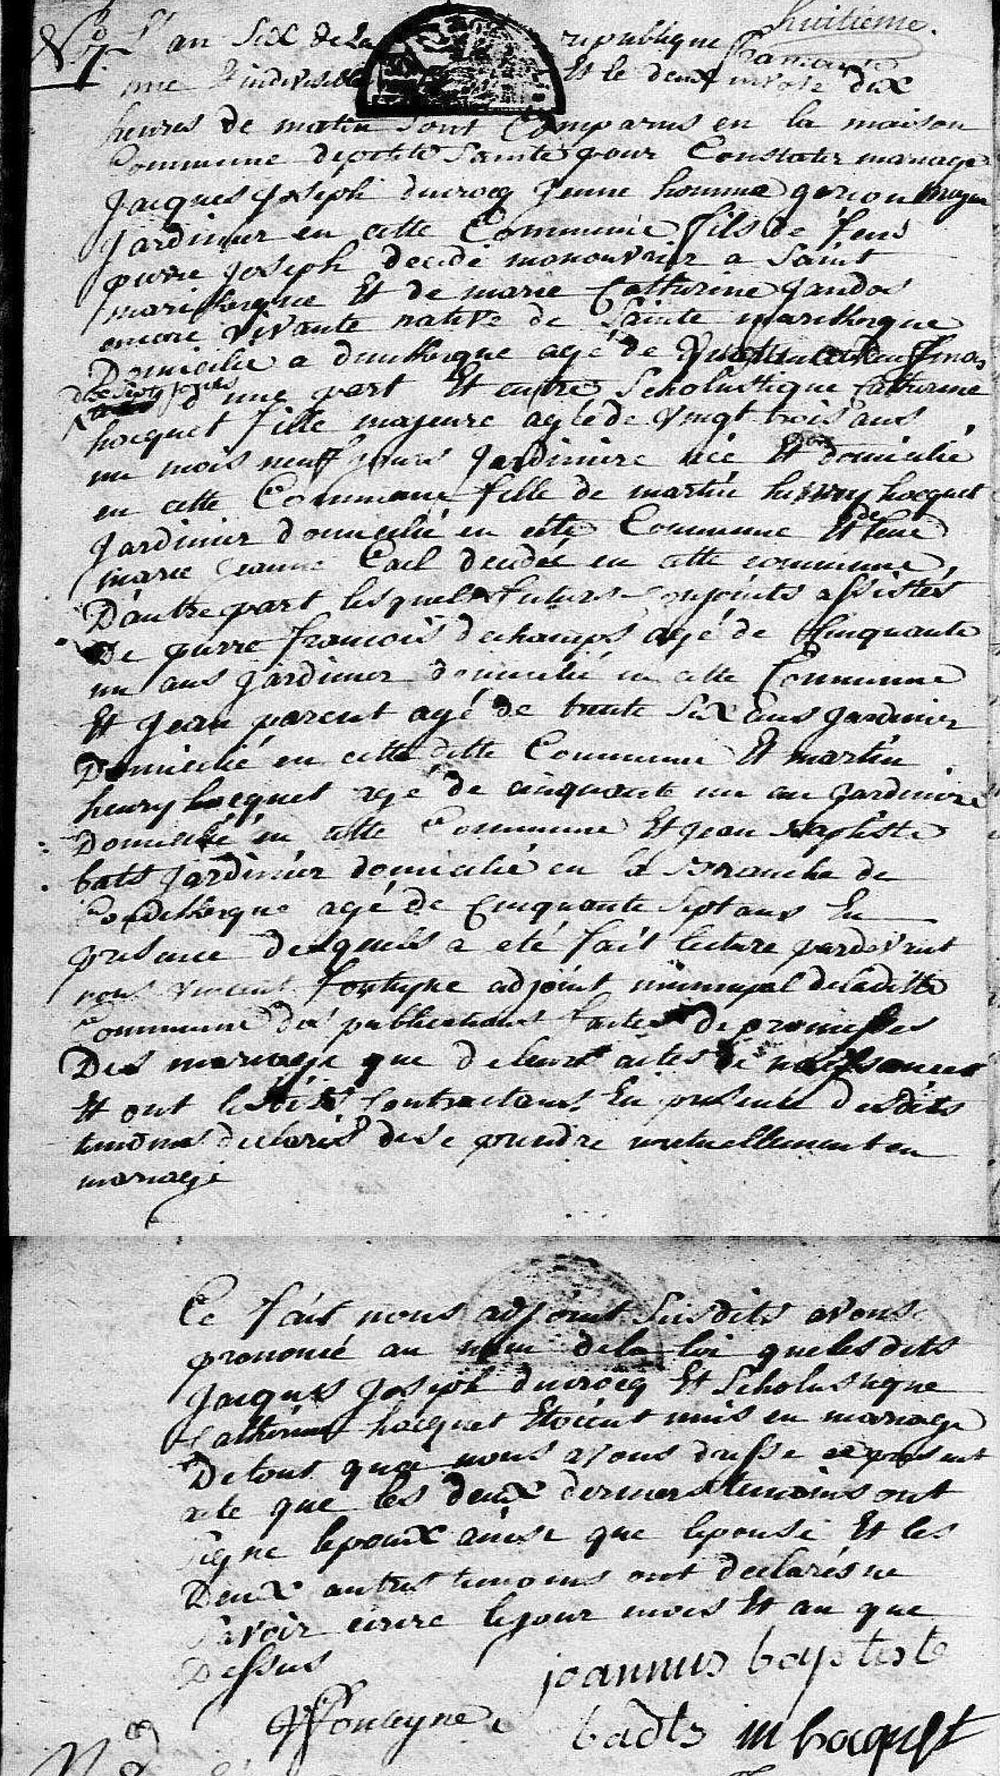 huitième.
N° 7 L'an Six de la republique francaise
une Et indivisible Et le deux nivose dix
heures de matin sont Comparus en la maison
Commune de petite Sainte pour Constater mariage
Jacques Joseph ducrocq Jeune homme garcon majeur
Jardinier en cette Commune fils de feus
pierre Joseph decidé monouvrier a Saint
marikerque Et de marie Catherine Jandos
encore vivante native de Sainte marikerque
Domicilie a dunkerque agé de
dix Sept jours d'une part Et entre Scholustique Catherine
hocquet fille majeure agée de vingt trois ans
un mois neuff jours Jardiniere née Et domicilié
en cette Commune fille de martin henry hocquet
Jardinier domicilié en cette Commune Et de feue
marie Jeanne Cail decidée en cette commune,
D'autre part lesquels futurs Conjoints assistés
De pierre francois dechamps agé de Cinquante
un ans Jardinier domicilié en cette Commune
Et Jean parent agé de trente Six ans Jardinier
Domicilié en cette ditte Commune Et martin
henry hocquet agé de cinquante un an Jardiniere
Domicilié en cette Commune Et Jean Baptiste
bats Jardinier domicilié en la Branche de
Coudekerque agé de Cinquante Sept ans En
presence desquels a eté fait lecture pardevant
nous vincent fonteyne adjoint municipal de laditte
Commune des publications actes de promesses
Des mariage que de leurs actes de naissances
Et ont lesdits Contractans En presence desdits
temoins declarés de se prendre mutuellement en
mariage
Ce fait nous adjoint Susdits avons
prononcé au nom de la loi que lesdits
Jacques Joseph ducrocq Et Scholustique
Catherine hocquet Etoient unis en mariage
De tout que nous avons dresse ce present
acte que les deux derniers temoins ont
Signe lepoux ainsi que lepouse Et les
Deux autres temoins ont declarés ne
Savoir ecrire le jour mois Et an que
Dessus
joannus baptiste
Vffonteyne badts m hocquet
N°